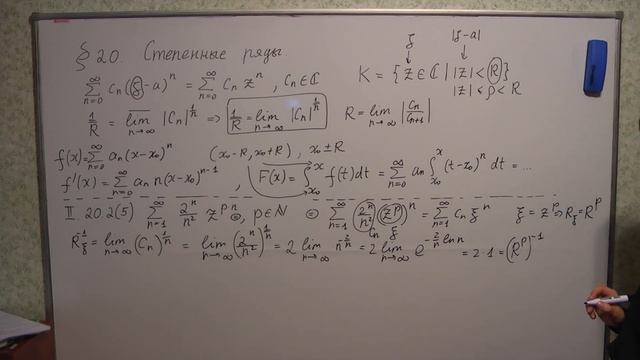 §20. Степенные ряды.
ξ |ξ-a|
∑_{n=0}^{∞} c_n(ξ-a)^n = ∑_{n=0}^{∞} c_n z^n , c_n∈ℂ
K = { z∈ℂ | |z|<R }
|z| ≤ ρ < R
1/R = \overline{lim}_{n→∞} |c_n|^{1/n} ⇒ 1/R = lim_{n→∞} |c_n|^{1/n} R = lim_{n→∞} |c_n/c_{n+1}|
f(x)=∑_{n=0}^{∞} a_n(x-x_0)^n (x_0-R, x_0+R) , x_0±R
f'(x)=∑_{n=0}^{∞} a_n n(x-x_0)^{n-1} , F(x)=∫_{x_0}^{x} f(t)dt = ∑_{n=0}^{∞} a_n ∫_{x_0}^{x} (t-x_0)^n dt = ...
II 20.2(5) ∑_{n=1}^{∞} 2^n/n^2 z^{pn} ⊜, p∈N ⊜ ∑_{n=1}^{∞} (2^n/n^2)(z^p)^n = ∑_{n=1}^{∞} c_n ξ^n ξ = z^p ⇒ R_ξ = R^p
c_n ξ
R_ξ^{-1} = lim_{n→∞} (c_n)^{1/n} = lim_{n→∞} (2^n/n^2)^{1/n} = 2 lim_{n→∞} n^{-2/n} = 2 lim_{n→∞} e^{-2/n ln n} = 2·1 = (R^p)^{-1}